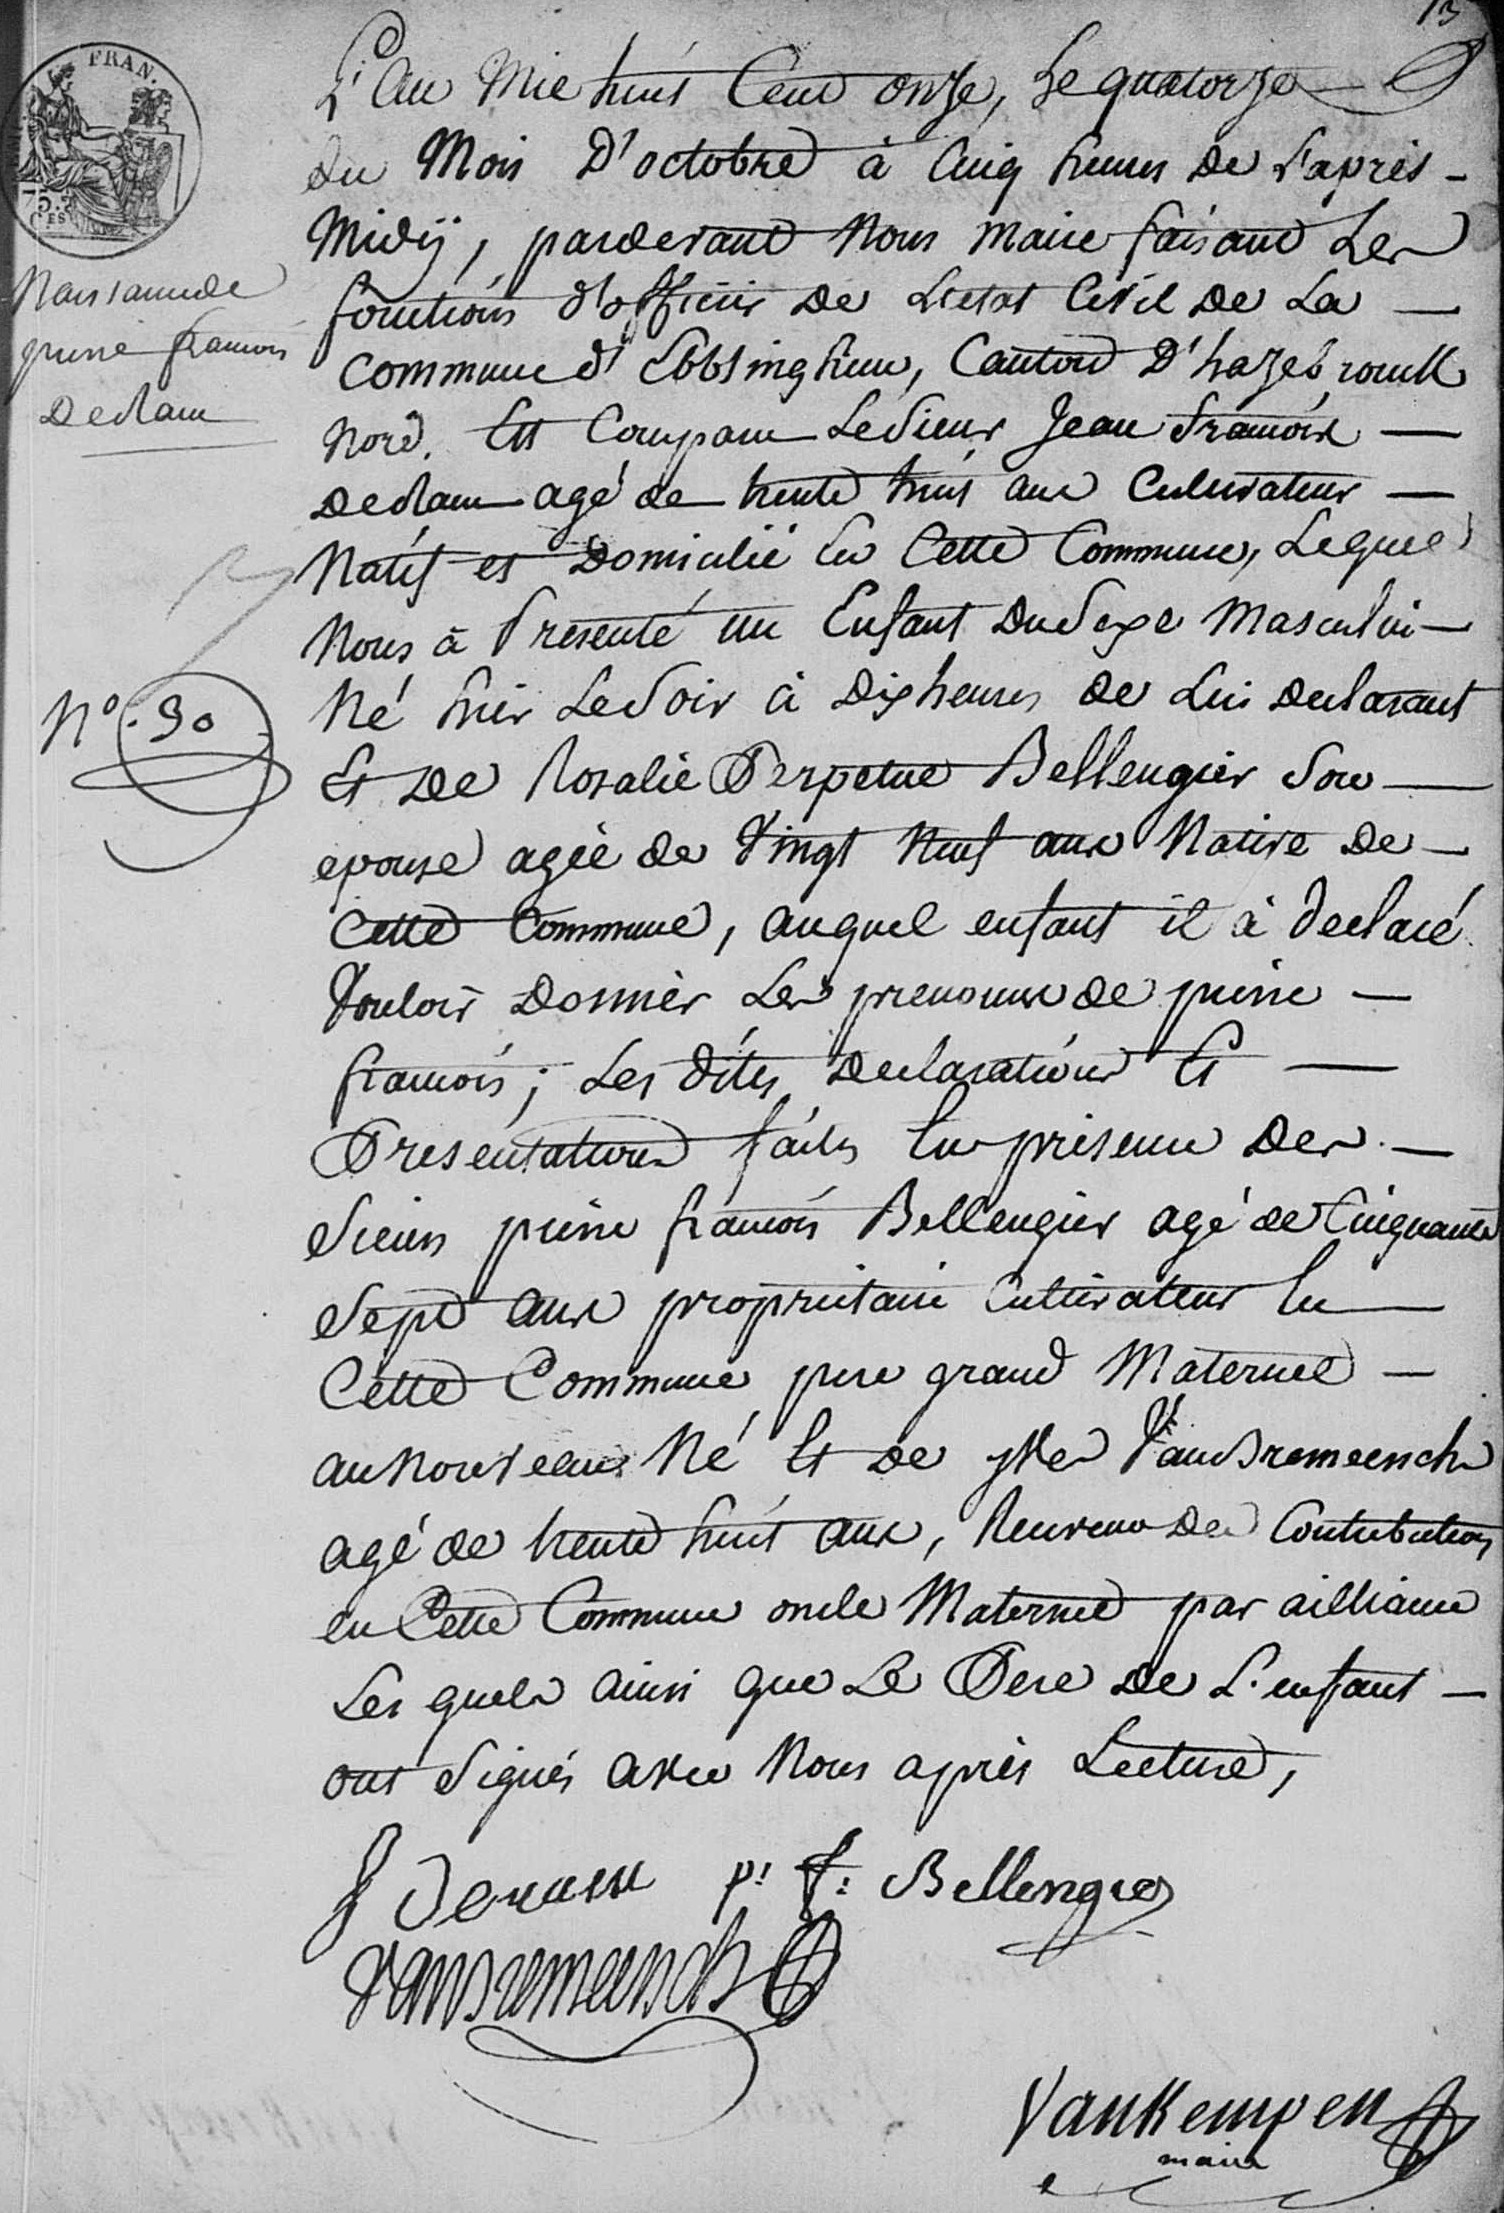 13
FRAN.
75.C
CES
L'an Mil huit Cent onze, le quatorze
du Mois D'octobre à Cinq heures De l'après-
Midÿ, pardevant Nous Maire faisant Les
fonctions d'officier De L'etat Civil De La
Commune d'Ebblinghem, Canton D'hazebrouck
Nord. Est Comparu Le Sieur Jean François
Deckam agé de trente huit ans Cultivateur
Natif et Domicilié En Cette Commune, Lequel
Nous à Présenté un Enfant Du Sexe Masculin
Né hier Le Soir à Dix heures De Lui Declarant
Et De Rosalie Perpetue Bellengier Son
epouse agée de Vingt Neuf ans Native De
Cette Commune, auquel enfant il à declaré
Vouloir Donner Les prenoms de pierre
françois; Les dites Declaration Et
Présentation faites En présence Des
Sieurs pierre françois Bellengier agé de Cinquante
Sept ans propriétaire Cultivateur En
Cette Commune pere grand Maternel
au Nouveau Né Et De Vandromeench
agé de trente huit ans, Receveur Des Contributions
en Cette Commune oncle Maternel par ailliance
Les quels ainsi que Le Pere De L'enfant
ont Signés avec Nous après Lecture,
Naissance de
pierre françois
Nº. 90
p: f: Bellengier
Vandromeench
Vankempen
maire